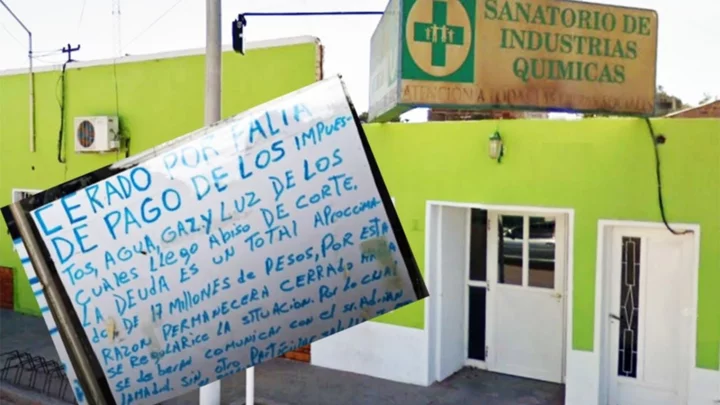 SANATORIO DE
INDUSTRIAS
QUIMICAS
ATENCION A TODAS LAS OBRAS SOCIALES
CERADO POR FALTA
DE PAGO DE LOS IMPUES-
TOS, AGUA, GAZ Y LUZ DE LOS
CUALES LLEGO ABISO DE CORTE.
LA DEUDA ES UN TOTAL APROCCIMA-
DO DE 17 MILLONES de PESOS, POR ESTA
RAZON PERMANECERA CERRADO
SE REGULARICE LA SITUACION. POR LO CUAL
SE deberan COMUNICAR CON el SR. Adrian
SIN OTRO PARTICULAR